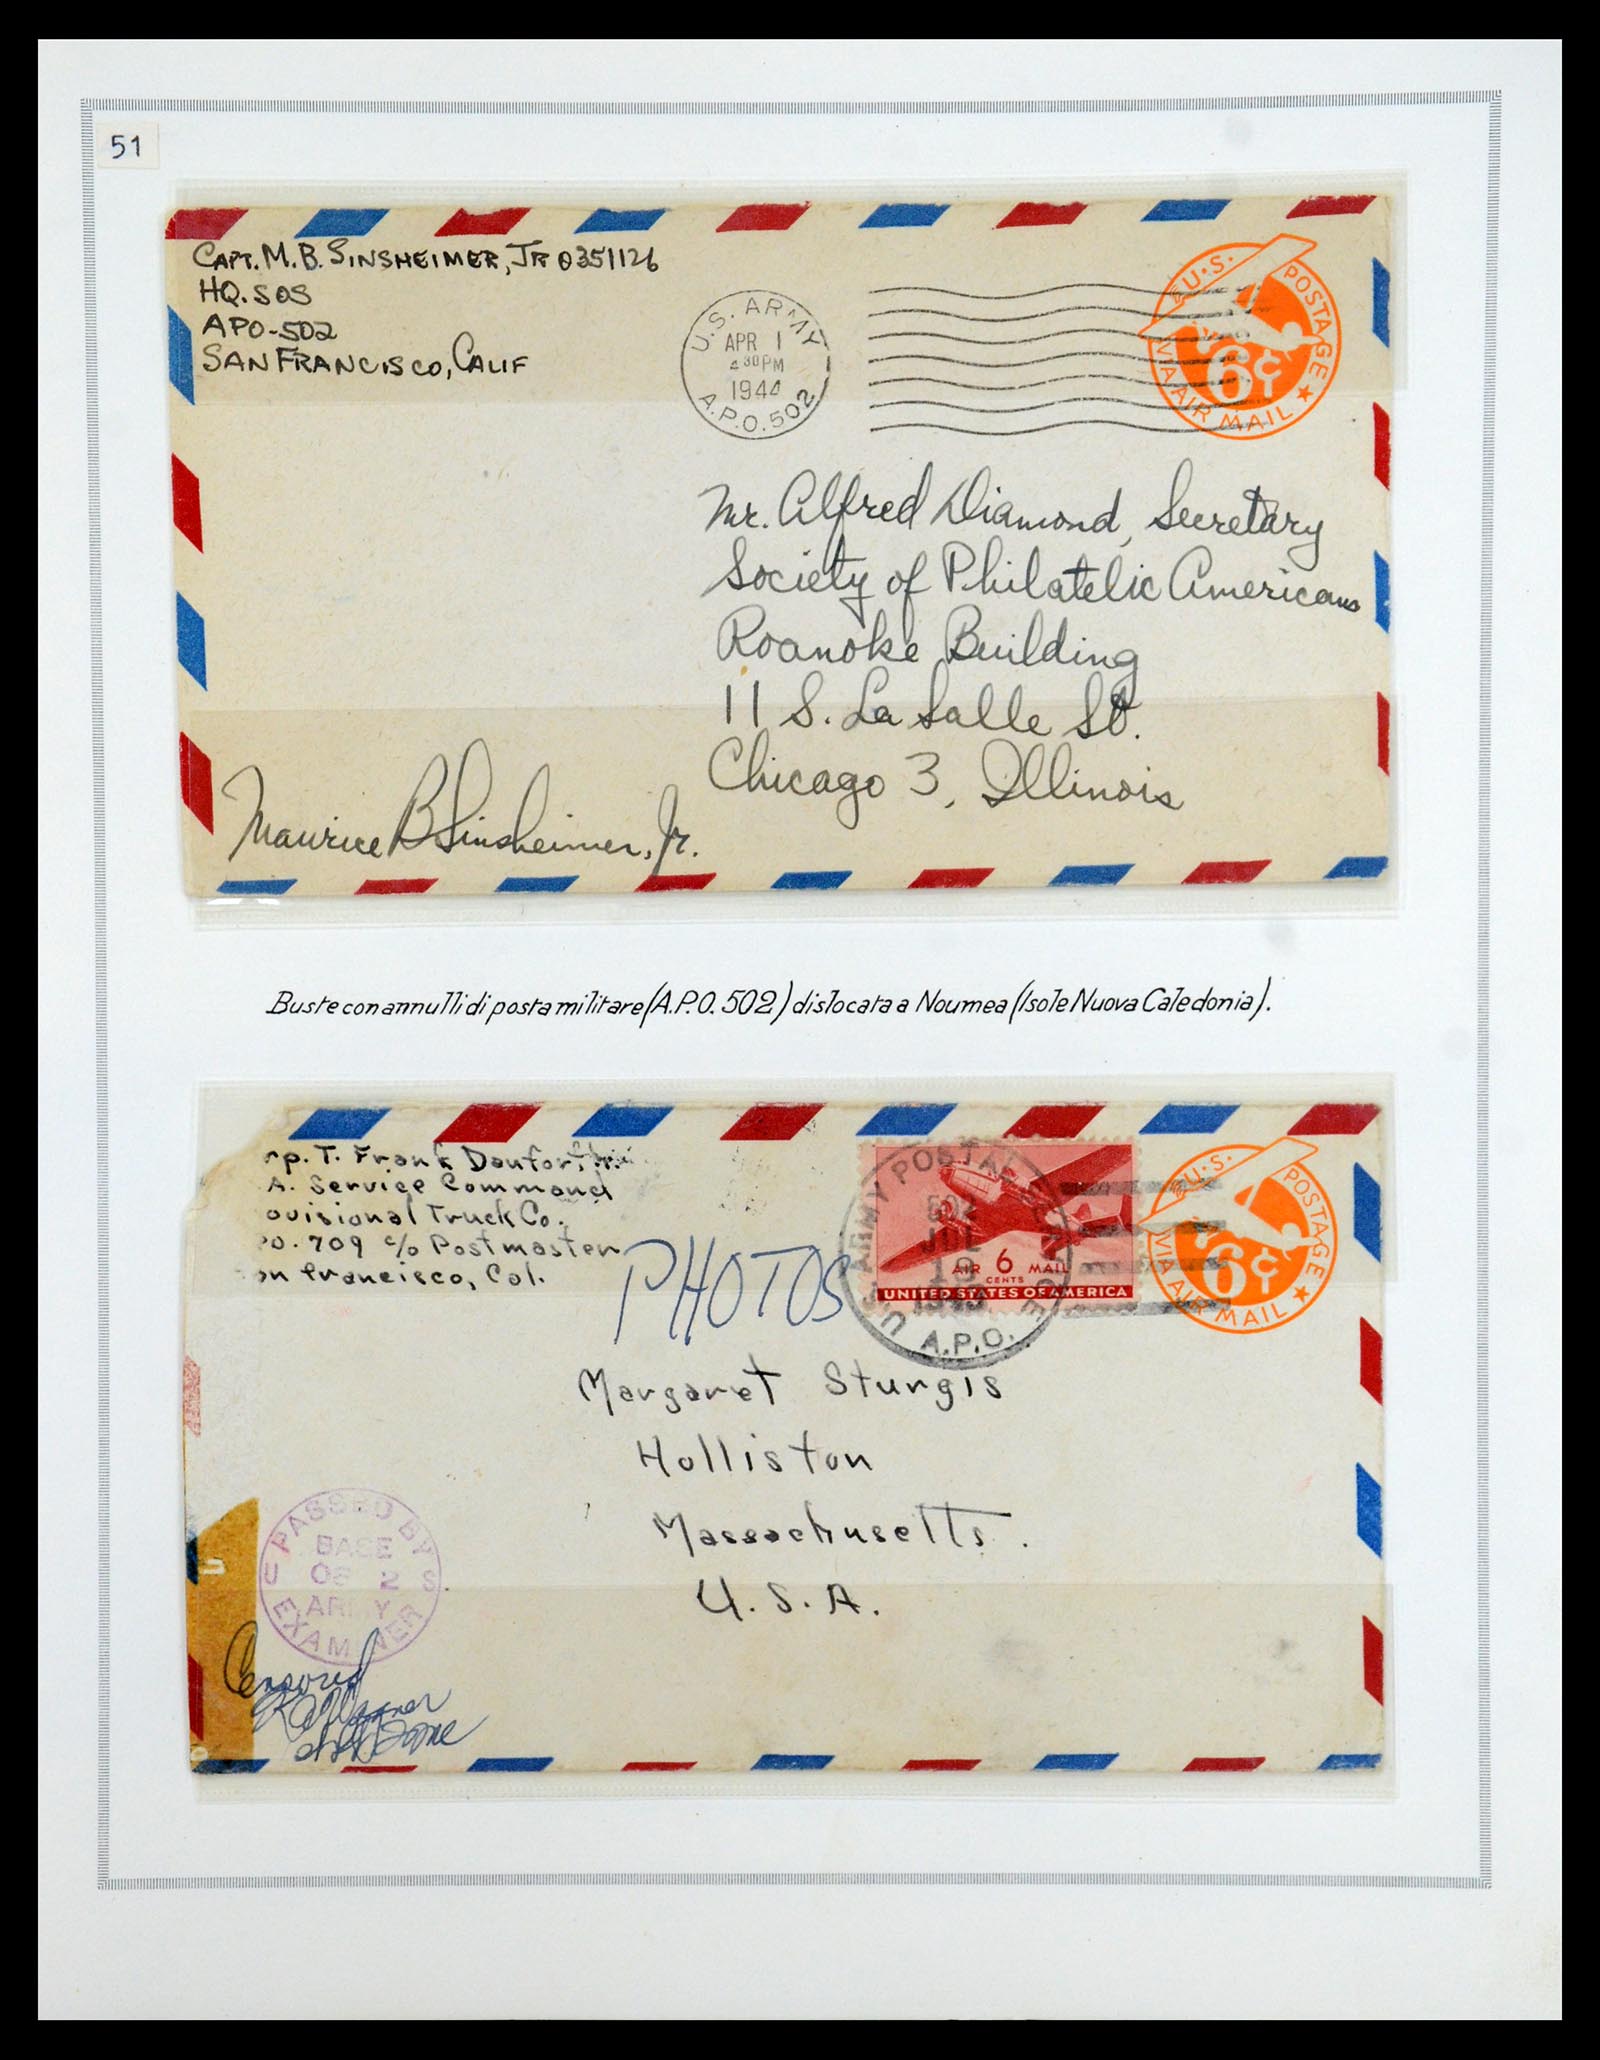 51
CAPT. M. B. SINSHEIMER, JR 0351126
HQ. SOS
APO-502
SAN FRANCISCO, CALIF
U.S. ARMY
APR 1
30 PM
1944
A.P.O. 502
U.S. POSTAGE
6¢
VIA AIR MAIL
Mr. Alfred Diamond, Secretary
Society of Philatelic Americans
Roanoke Building
11 S. La Salle St.
Chicago 3, Illinois
Maurice B Sinsheimer, Jr.
Buste con annulli di posta militare (A.P.O. 502) dislocata a Noumea (Isole Nuova Caledonia).
rp. T. Frank Danforth
A. Service Command
ovisional Truck Co.
PO. 709 c/o Postmaster
an Francisco, Cal.
PHOTOS
U.S. ARMY POSTAL SERVICE
502
JUL
A.P.O.
AIR 6 MAIL
CENTS
UNITED STATES OF AMERICA
U.S. POSTAGE
6¢
VIA AIR MAIL
Margaret Sturgis
Holliston
Massachusetts.
U.S.A.
PASSED BY
BASE
U S
ARMY
EXAMINER
Censored